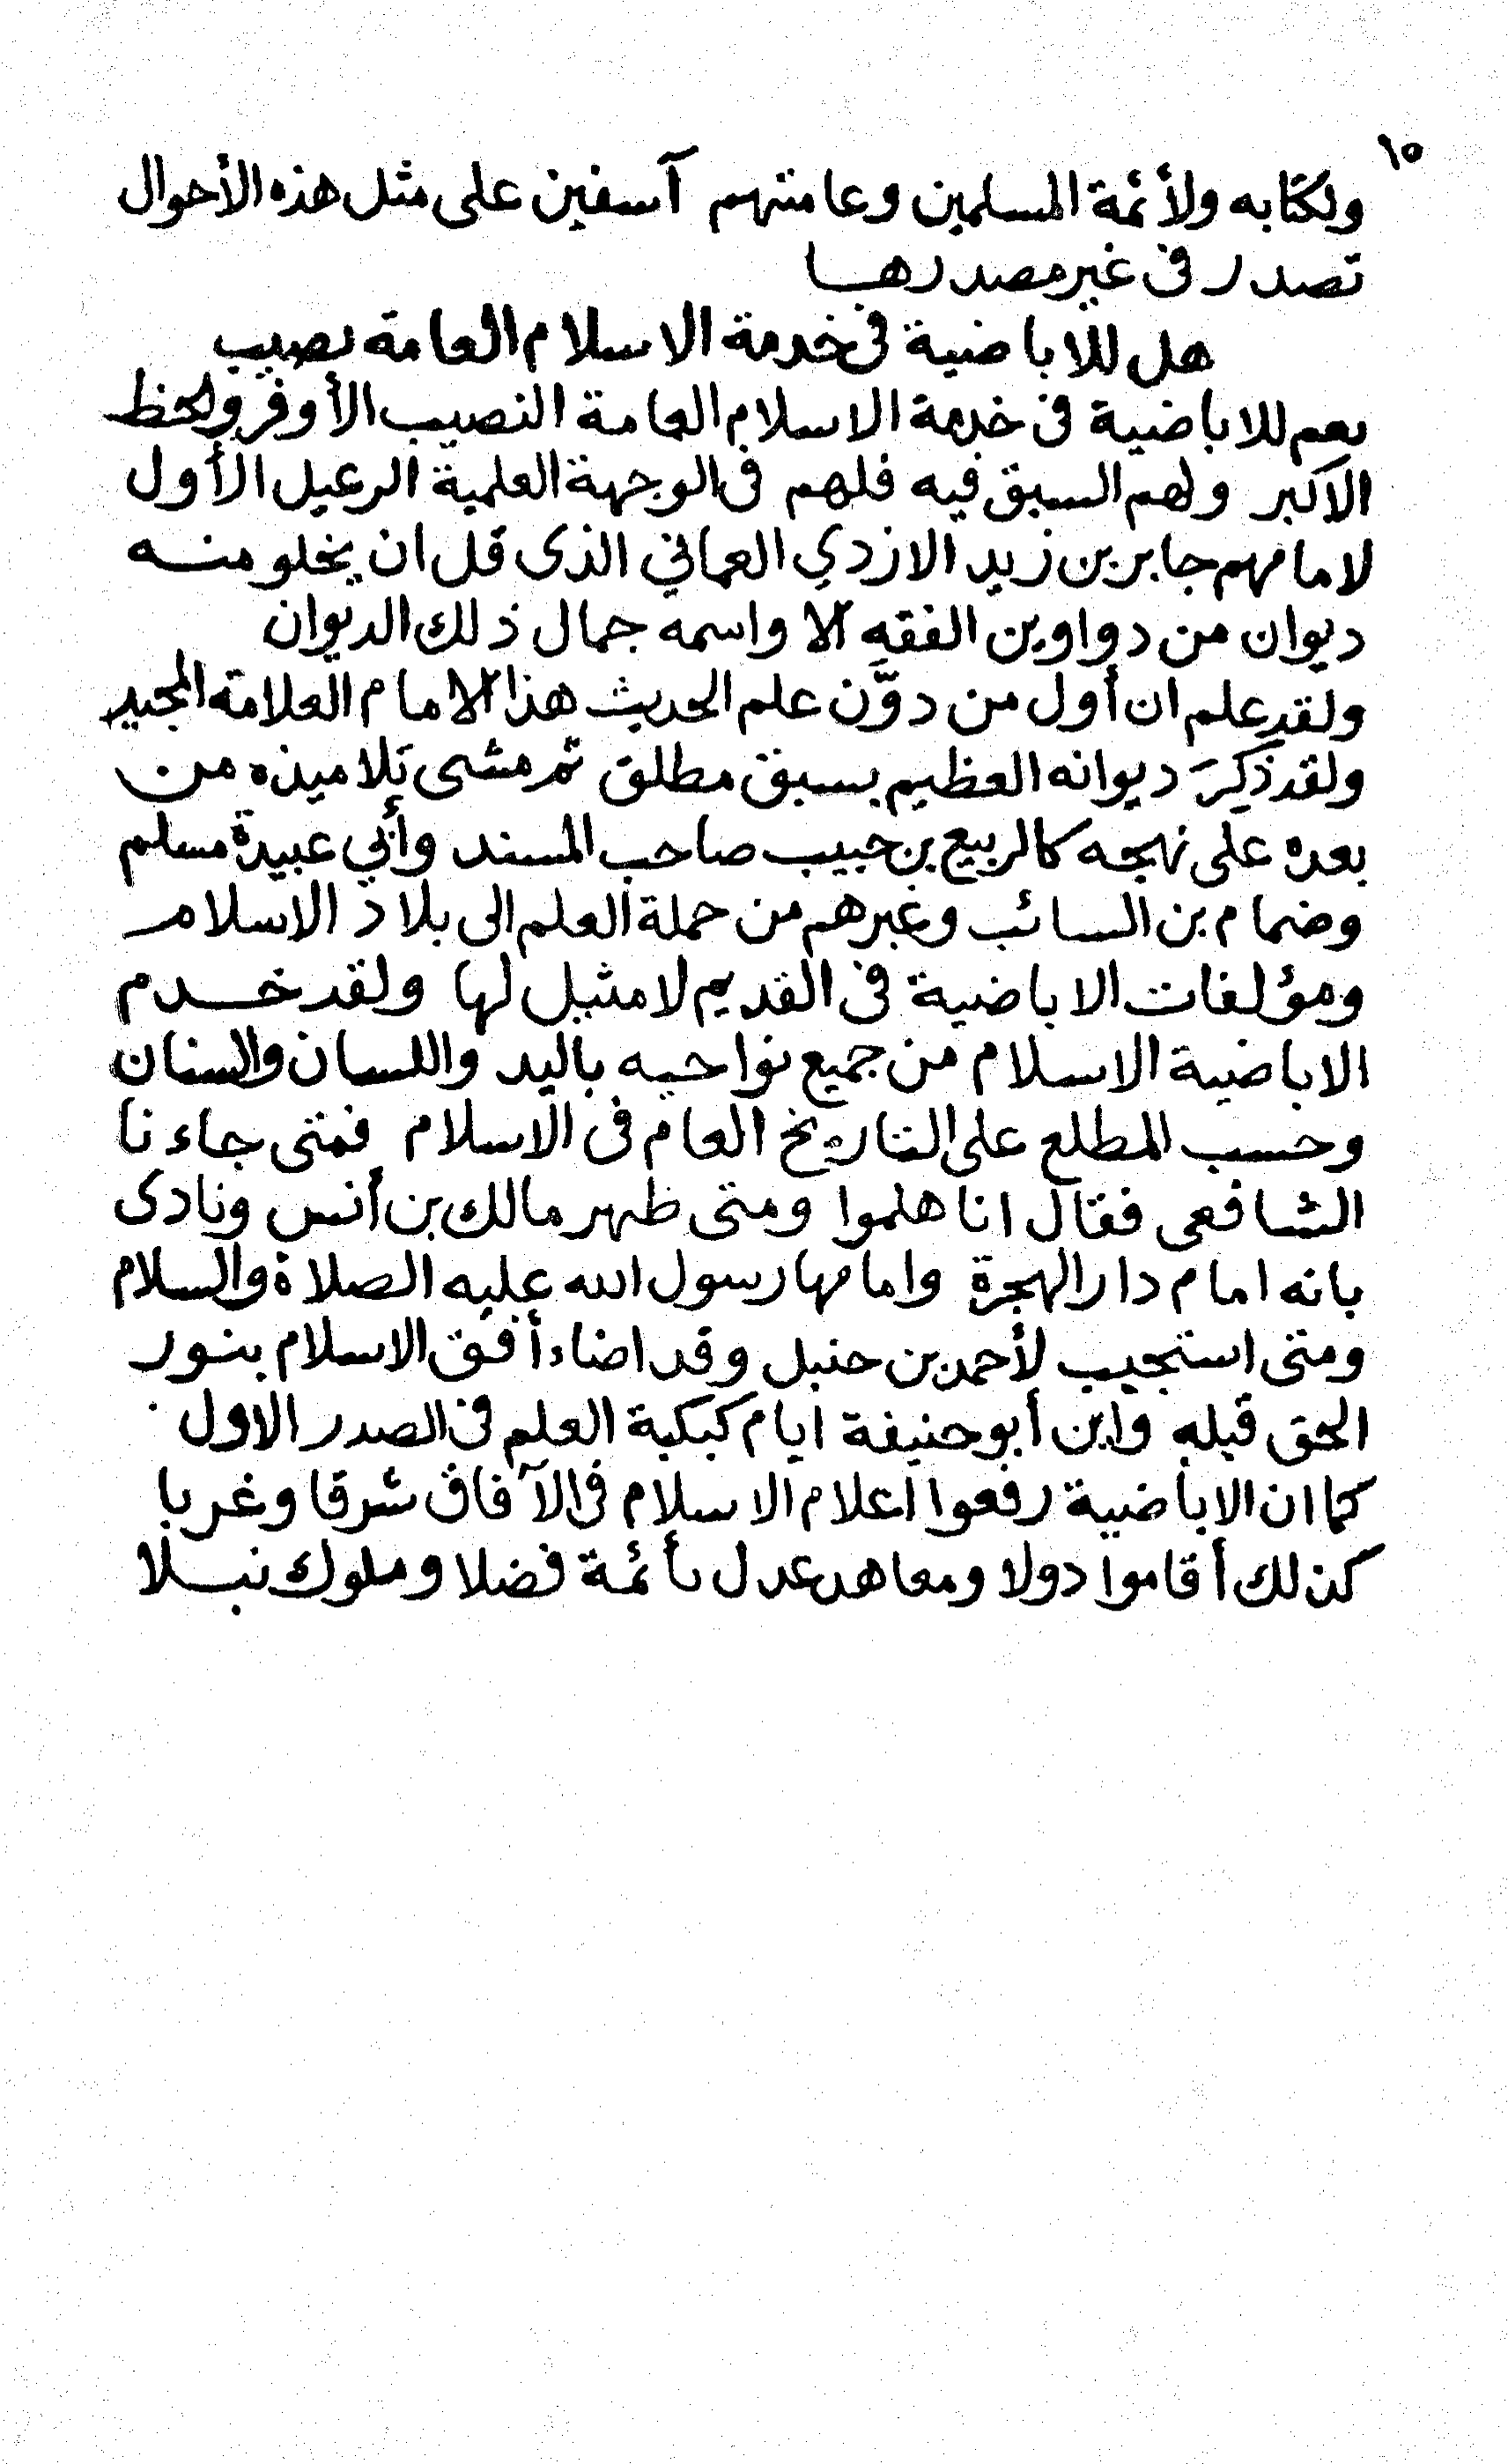 ١٥
ولكتابه ولأئمة المسلمين وعامتهم آسفين على مثل هذه الأحوال
تصدر فى غير مصدرها
هل للاباضية فى خدمة الاسلام العامة نصيب
نعم للاباضية فى خدمة الاسلام العامة النصيب الأوفر ولحظ
الاكبر ولهم السبق فيه فلهم فى الوجهة العلمية الرعيل الأول
لامامهم جابر بن زيد الازدي العماني الذى قل ان يخلو منه
ديوان من دواوين الفقه الا واسمه جمال ذلك الديوان
ولقد علم ان أول من دوَّن علم الحديث هذا الامام العلامة المجيد
ولقد ذكِرَ ديوانه العظيم بسبق مطلق ثم مشى تلاميذه من
بعده على نهجه كالربيع بن حبيب صاحب المسند وأبي عبيدة مسلم
وضمام بن السائب وغيرهم من حملة العلم الى بلاد الاسلام
ومؤلفات الاباضية فى القديم لا مثيل لها ولقد خدم
الاباضية الاسلام من جميع نواحيه باليد واللسان والسنان
وحسب المطلع على التاريخ العام فى الاسلام فمتى جاءنا
الشافعى فقال انا هلموا ومتى ظهر مالك بن أنس ونادى
بانه امام دار الهجرة وامامها رسول الله عليه الصلاة والسلام
ومتى استجيب لأحمد بن حنبل وقد اضاء أفق الاسلام بنور
الحق قبله واين أبو حنيفة ايام كبكبة العلم فى الصدر الاول
كما ان الاباضية رفعوا اعلام الاسلام فى الآفاق شرقا وغربا
كذلك أقاموا دولا ومعاهد عدل بأئمة فضلا وملوك نبلا